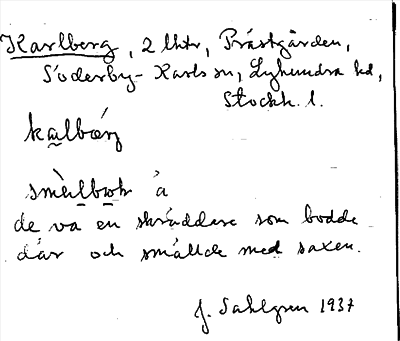 Karlberg, 2 lhtr, Prästgården,
Söderby-Karls sn, Lyhundra hd,
Stockh. l.
kalbærj
smàlbærj å
de va en skräddare som bodde
där och smällde med saxen.
J. Sahlgren 1937